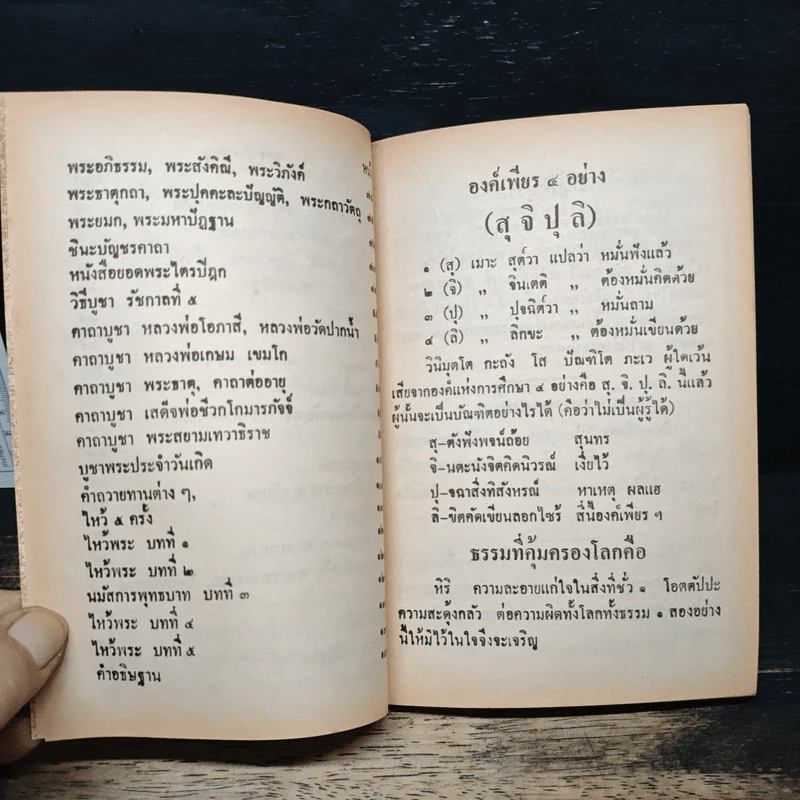 พระอภิธรรม, พระสังคิณี, พระวิภังค์
พระธาตุกถา, พระปุคคะละบัญญัติ, พระกถาวัตถุ
พระยมก, พระมหาปัฏฐาน
ชินะบัญชรคาถา
หนังสือยอดพระไตรปีฎก
วิธีบูชา รัชกาลที่ ๕
คาถาบูชา หลวงพ่อโอภาสี, หลวงพ่อวัดปากน้ำ
คาถาบูชา หลวงพ่อเกษม เขมโก
คาถาบูชา พระธาตุ, คาถาต่ออายุ
คาถาบูชา เสด็จพ่อชีวกโกมารภัจจ์
คาถาบูชา พระสยามเทวาธิราช
บูชาพระประจำวันเกิด
คำถวายทานต่าง ๆ,
ไหว้ ๕ ครั้ง
ไหว้พระ บทที่ ๑
ไหว้พระ บทที่ ๒
นมัสการพุทธบาท บทที่ ๓
ไหว้พระ บทที่ ๔
ไหว้พระ บทที่ ๕
คำอธิษฐาน
องค์เพียร ๔ อย่าง
(สุ จิ ปุ ลิ)
๑ (สุ) เมาะ สุต์วา แปลว่า หมั่นฟังแล้ว
๒ (จิ) ,, จินเตติ ,, ต้องหมั่นคิดด้วย
๓ (ปุ) ,, ปุจฉิต์วา ,, หมั่นถาม
๔ (ลิ) ,, ลิกขะ ,, ต้องหมั่นเขียนด้วย
วินิมุตโต กะถัง โส บัณฑิโต ภะเว ผู้ใดเว้น
เสียจากองค์แห่งการศึกษา ๔ อย่างคือ สุ. จิ. ปุ. ลิ. นี้แล้ว
ผู้นั้นจะเป็นบัณฑิตอย่างไรได้ (คือว่าไม่เป็นผู้รู้ได้)
สุ-ตังฟังพจน์ถ้อย สุนทร
จิ-นตะนังจิตคิดนิวรณ์ เงี่ยไว้
ปุ-จฉาสิ่งทิสังหรณ์ หาเหตุ ผลแฮ
ลิ-ขิตคัดเขียนลอกไซร้ สี่นี้องค์เพียร ฯ
ธรรมที่คุ้มครองโลกคือ
หิริ ความละอายแก่ใจในสิ่งที่ชั่ว ๑ โอตตัปปะ
ความสะดุ้งกลัว ต่อความผิดทั้งโลกทั้งธรรม ๑ สองอย่าง
นี้ให้มีไว้ในใจจึงจะเจริญ